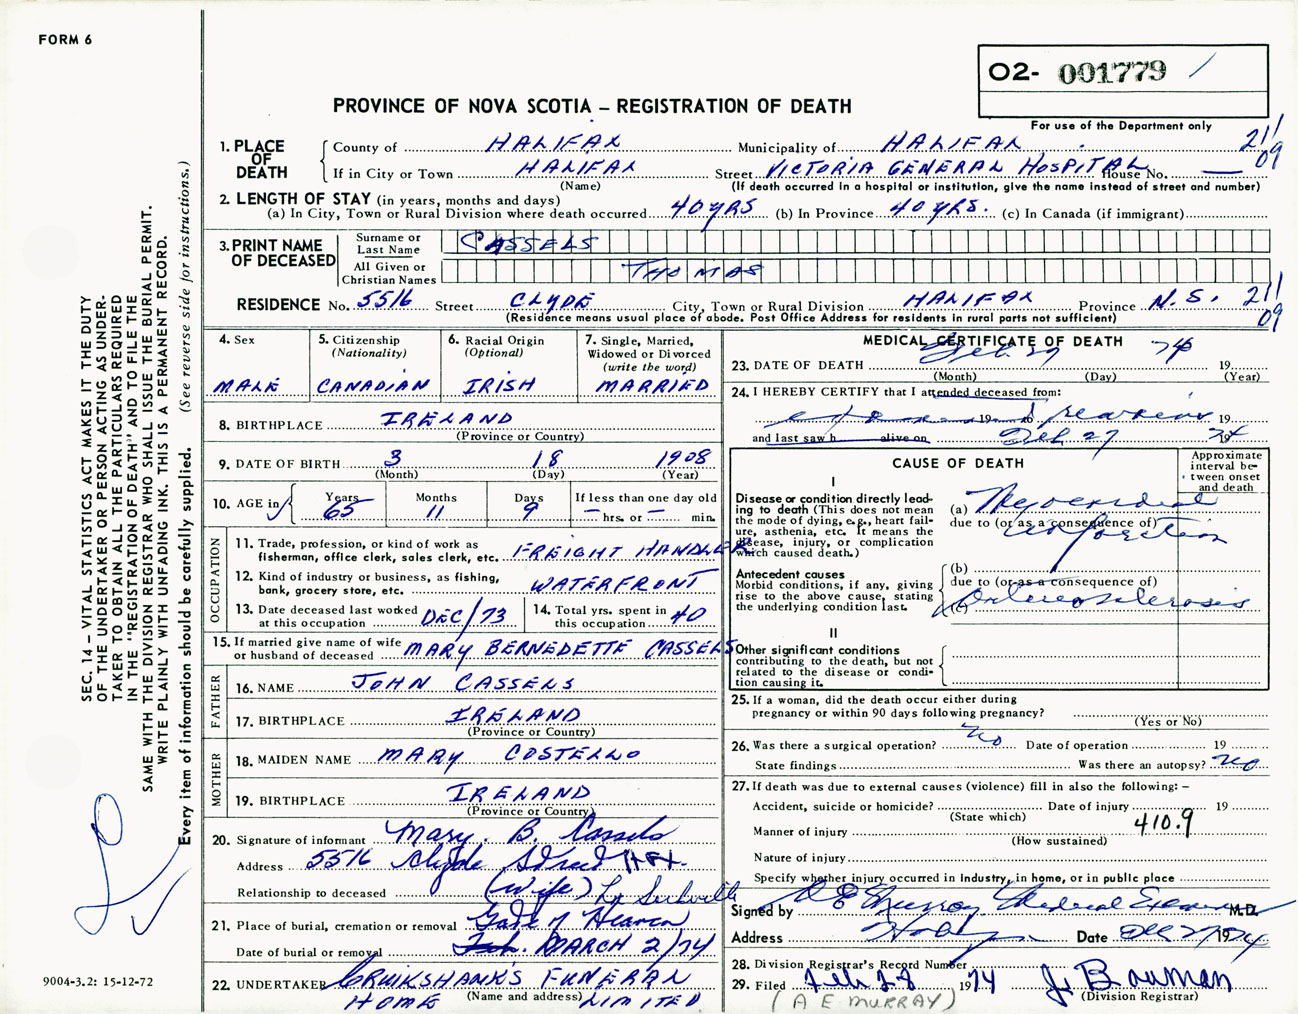 FORM 6
O2- 001779 /
PROVINCE OF NOVA SCOTIA – REGISTRATION OF DEATH
For use of the Department only
1. PLACE OF DEATH
County of HALIFAX Municipality of HALIFAX 211
If in City or Town HALIFAX Street VICTORIA GENERAL HOSPITAL House No. — 09
(Name) (If death occurred in a hospital or institution, give the name instead of street and number)
2. LENGTH OF STAY (in years, months and days)
(a) In City, Town or Rural Division where death occurred 40 YRS (b) In Province 40 YRS. (c) In Canada (if immigrant)
3. PRINT NAME OF DECEASED
Surname or Last Name CASSELS
All Given or Christian Names THOMAS
RESIDENCE No. 5516 Street CLYDE City, Town or Rural Division HALIFAX Province N.S. 211
(Residence means usual place of abode. Post Office Address for residents in rural parts not sufficient) 09
4. Sex
MALE
5. Citizenship
(Nationality)
CANADIAN
6. Racial Origin
(Optional)
IRISH
7. Single, Married,
Widowed or Divorced
(write the word)
MARRIED
8. BIRTHPLACE IRELAND
(Province or Country)
9. DATE OF BIRTH 3 18 1908
(Month) (Day) (Year)
10. AGE in Years Months Days If less than one day old
65 11 9 — hrs. or — min.
OCCUPATION
11. Trade, profession, or kind of work as
fisherman, office clerk, sales clerk, etc. FREIGHT HANDLER
12. Kind of industry or business, as fishing,
bank, grocery store, etc. WATERFRONT
13. Date deceased last worked
at this occupation DEC/73
14. Total yrs. spent in
this occupation 40
15. If married give name of wife
or husband of deceased MARY BERNEDETTE CASSELS
FATHER
16. NAME JOHN CASSELS
17. BIRTHPLACE IRELAND
(Province or Country)
MOTHER
18. MAIDEN NAME MARY COSTELLO
19. BIRTHPLACE IRELAND
(Province or Country)
20. Signature of informant Mary. B. Cassels
Address 5516 Clyde Street Hfx.
Relationship to deceased (wife) Lr Sackville
21. Place of burial, cremation or removal Gate of Heaven
Date of burial or removal Feb. MARCH 2/74
22. UNDERTAKER CRUIKSHANK'S FUNERAL
(Name and address)
HOME LIMITED
MEDICAL CERTIFICATE OF DEATH
23. DATE OF DEATH Feb. 27 74 19
(Month) (Day) (Year)
24. I HEREBY CERTIFY that I attended deceased from:
19 to 19
and last saw h alive on Feb 27 1974
CAUSE OF DEATH
Approximate
interval be-
tween onset
and death
I
Disease or condition directly lead-
ing to death (This does not mean
the mode of dying, e.g., heart fail-
ure, asthenia, etc. It means the
disease, injury, or complication
which caused death.)
(a) Myocardial
due to (or as a consequence of)
infarction
Antecedent causes
Morbid conditions, if any, giving
rise to the above cause, stating
the underlying condition last.
(b)
due to (or as a consequence of)
(c) Arteriosclerosis
II
Other significant conditions
contributing to the death, but not
related to the disease or condi-
tion causing it.
25. If a woman, did the death occur either during
pregnancy or within 90 days following pregnancy?
(Yes or No)
26. Was there a surgical operation? no Date of operation 19
State findings Was there an autopsy? no
27. If death was due to external causes (violence) fill in also the following: –
Accident, suicide or homicide? Date of injury 19
(State which)
Manner of injury 410.9
(How sustained)
Nature of injury
Specify whether injury occurred in Industry, in home, or in public place
Signed by A E Murray Medical Examiner M.D.
Address Date Feb 27 1974
28. Division Registrar's Record Number
29. Filed Feb 28 1974 J. Bowman
(A E MURRAY) (Division Registrar)
SEC. 14 – VITAL STATISTICS ACT MAKES IT THE DUTY
OF THE UNDERTAKER OR PERSON ACTING AS UNDER-
TAKER TO OBTAIN ALL THE PARTICULARS REQUIRED
IN THE "REGISTRATION OF DEATH" AND TO FILE THE
SAME WITH THE DIVISION REGISTRAR WHO SHALL ISSUE THE BURIAL PERMIT.
WRITE PLAINLY WITH UNFADING INK. THIS IS A PERMANENT RECORD.
Every item of information should be carefully supplied. (See reverse side for instructions.)
9004-3.2: 15-12-72